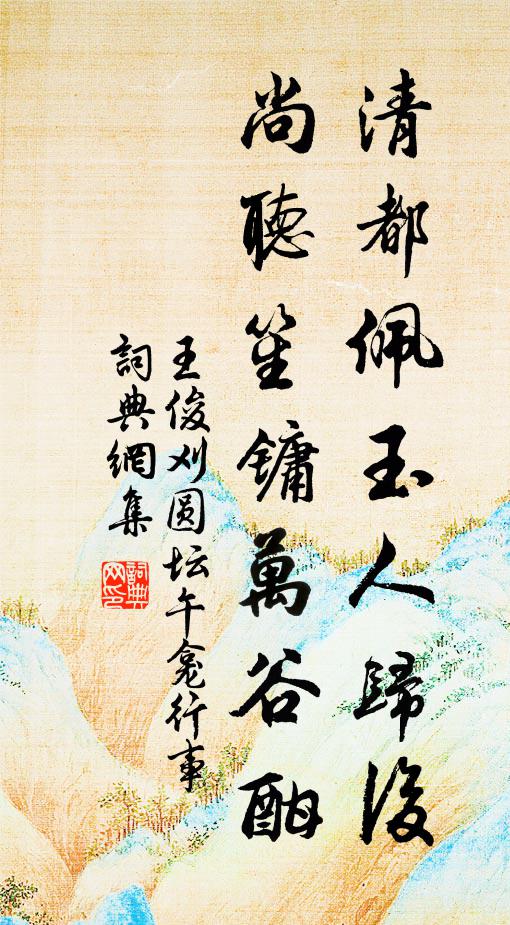 清都佩玉人歸後
尚聽笙鏞萬谷酣
王俊刈圆坛午龛行事
詞典網集
詞典网印